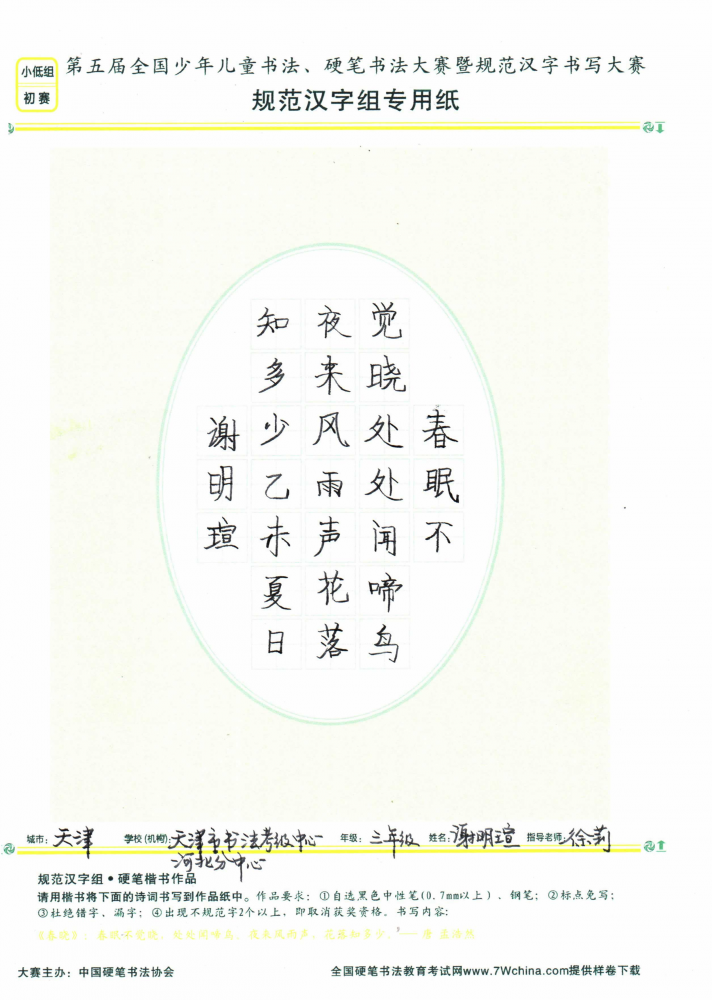 小低组
初赛
第五届全国少年儿童书法、硬笔书法大赛暨规范汉字书写大赛
规范汉字组专用纸
春眠不
觉晓处处闻啼鸟
夜来风雨声花落
知多少乙未夏日
谢明瑄
城市：天津 学校(机构)：天津市书法考级中心河北分中心 年级：三年级 姓名：谢明瑄 指导老师：徐莉
规范汉字组•硬笔楷书作品
请用楷书将下面的诗词书写到作品纸中。作品要求：①自选黑色中性笔(0.7mm以上)、钢笔；②标点免写；
③杜绝错字、漏字；④出现不规范字2个以上，即取消获奖资格。书写内容：
《春晓》：春眠不觉晓，处处闻啼鸟。夜来风雨声，花落知多少。——唐 孟浩然
大赛主办：中国硬笔书法协会 全国硬笔书法教育考试网www.7Wchina.com提供样卷下载